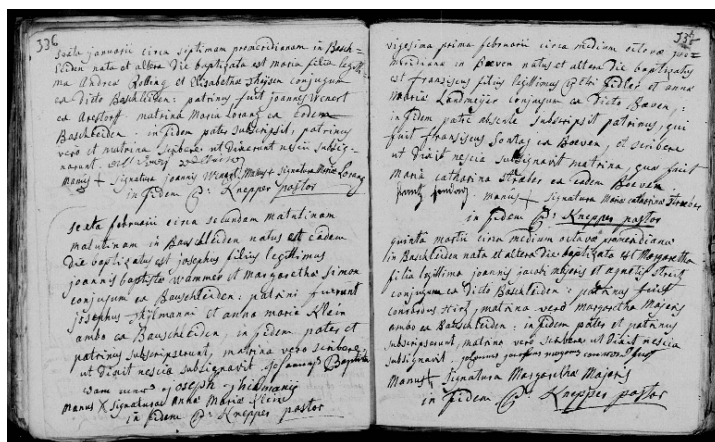 336
sexta januarii circa septimam promeridianam in Basch=
leiden nata et altera die baptizata est maria filia legiti=
ma Andreæ Rolling et Elisabethæ theisen conjugum
ex dicto Baschleiden: patrinus fuit joannes Wenert
ex Arestorf matrina Maria Lorang ex eodem
Baschleiden: in fidem pater subscripsit, patrinus
vero et matrina scribere ut dixerunt nescii subsig=
narunt.
Manus + signatura joannis Manus + signatura Mariæ Lorang
in fidem Knepper pastor
sexta februarii circa secundam matutinam
matutinam in Bauschleiden natus est eadem
die baptizatus est josephus filius legittimus
joannis baptistæ wammer et Margarethæ simon
conjugum ex Bauschleiden: patrini fuerunt
josephus thilmanni et anna maria Klein
ambo ex Bauschleiden, in fidem pater et
patrinus subscripserunt, matrina vero scribere
ut dixit nescia subsignavit. Baptista
joseph thilmany
Manus X signatura Annæ Mariæ Klein
in fidem Knepper pastor
337
vigesima prima februarii circa medium octavæ pro=
meridiana in Boeven natus et altera die baptizatus
est franciscus filius legittimus Petri fidler et anna
Maria Landmeijer conjugum ex dicto Boeven:
in fidem patre absente subscripsit patrinus, qui
fuit franciscus Sontag ex Boevan, et scribere
ut dixit nescia subsignavit matrina, quæ fuit
maria catharina Straber ex eadem Boevem
manus + signatura Mariæ catharinæ
in fidem Knepper pastor
quinta martii circa medium octavæ promeridianæ
in Baschleiden nata et altera die baptizata est Margaretha
filia legitima joannis jacobi majeris et agnetis
conjugum ex dicto Baschleiden: patrinus fuit
conrardus matrina vero margaretha Majeris
ambo ex Bauschleiden: in fidem pater et patrinus
subscripserunt, matrina vero scribere ut dixit nescia
subsignavit.
Manus + signatura Margarethæ Majeris
in fidem Knepper pastor